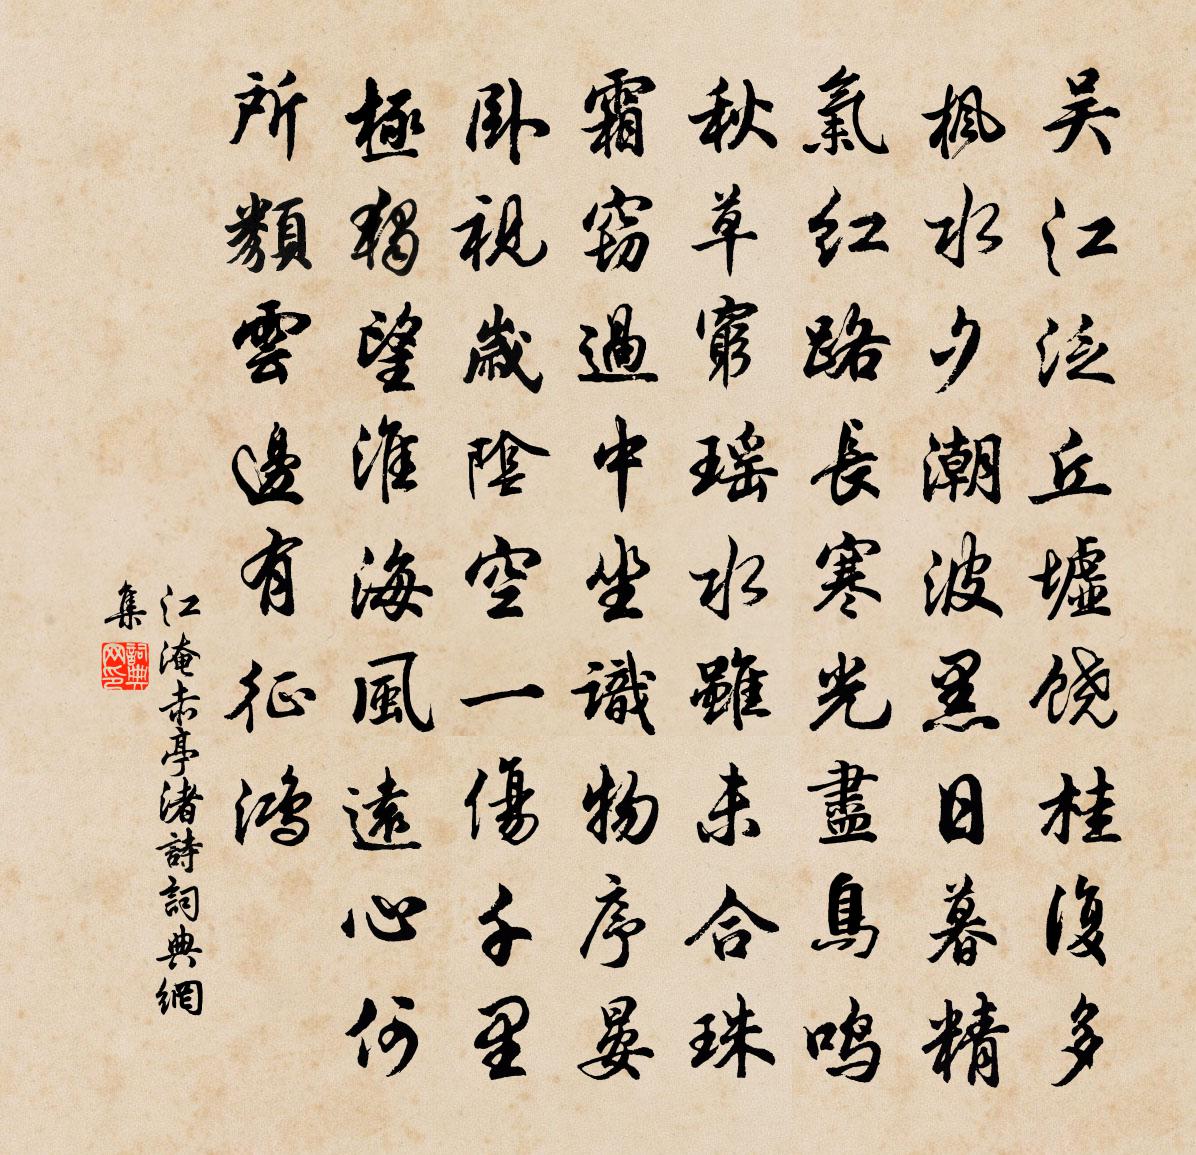 吴江泛丘墟饶桂復多
枫水夕潮波黑日暮精
氣红路長寒光盡鳥鸣
秋草窮瑶水雖未合珠
霜窃過中坐識物序晏
卧視歲陰空一傷千里
極獨望淮海風遠心何
所類雲邊有征鸿
江淹赤亭渚詩詞典網
集
詞典网印